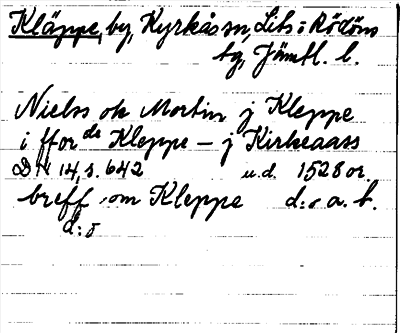 Kläppe, by, Kyrkås sn, Lits o Rödöns
tg, Jämtl. l.
Nielss ok Morten j Kleppe
i fforde Kleppe – j Kirkeaass
DN 14, s. 642 u.d. 1528 or.
breff om Kleppe d:o a. b.
d:o